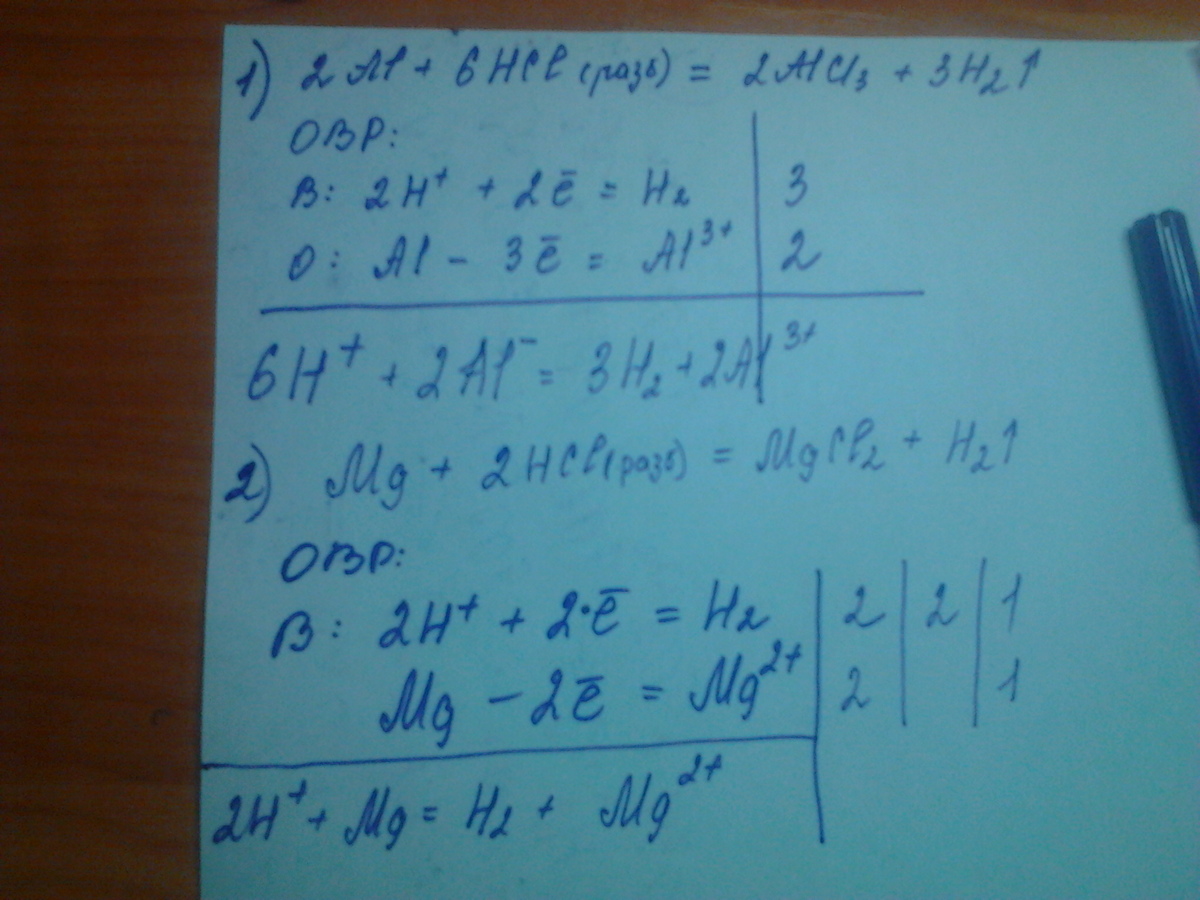 1) 2Al + 6HCl (разб) = 2AlCl₃ + 3H₂↑
ОВР:
В: 2H⁺ + 2ē = H₂ | 3
О: Al - 3ē = Al³⁺ | 2
6H⁺ + 2Al⁻ = 3H₂ + 2Al³⁺
2) Mg + 2HCl (разб) = MgCl₂ + H₂↑
ОВР:
В: 2H⁺ + 2·ē = H₂ | 2 | 2 | 1
Mg - 2ē = Mg²⁺ | 2 | | 1
2H⁺ + Mg = H₂ + Mg²⁺